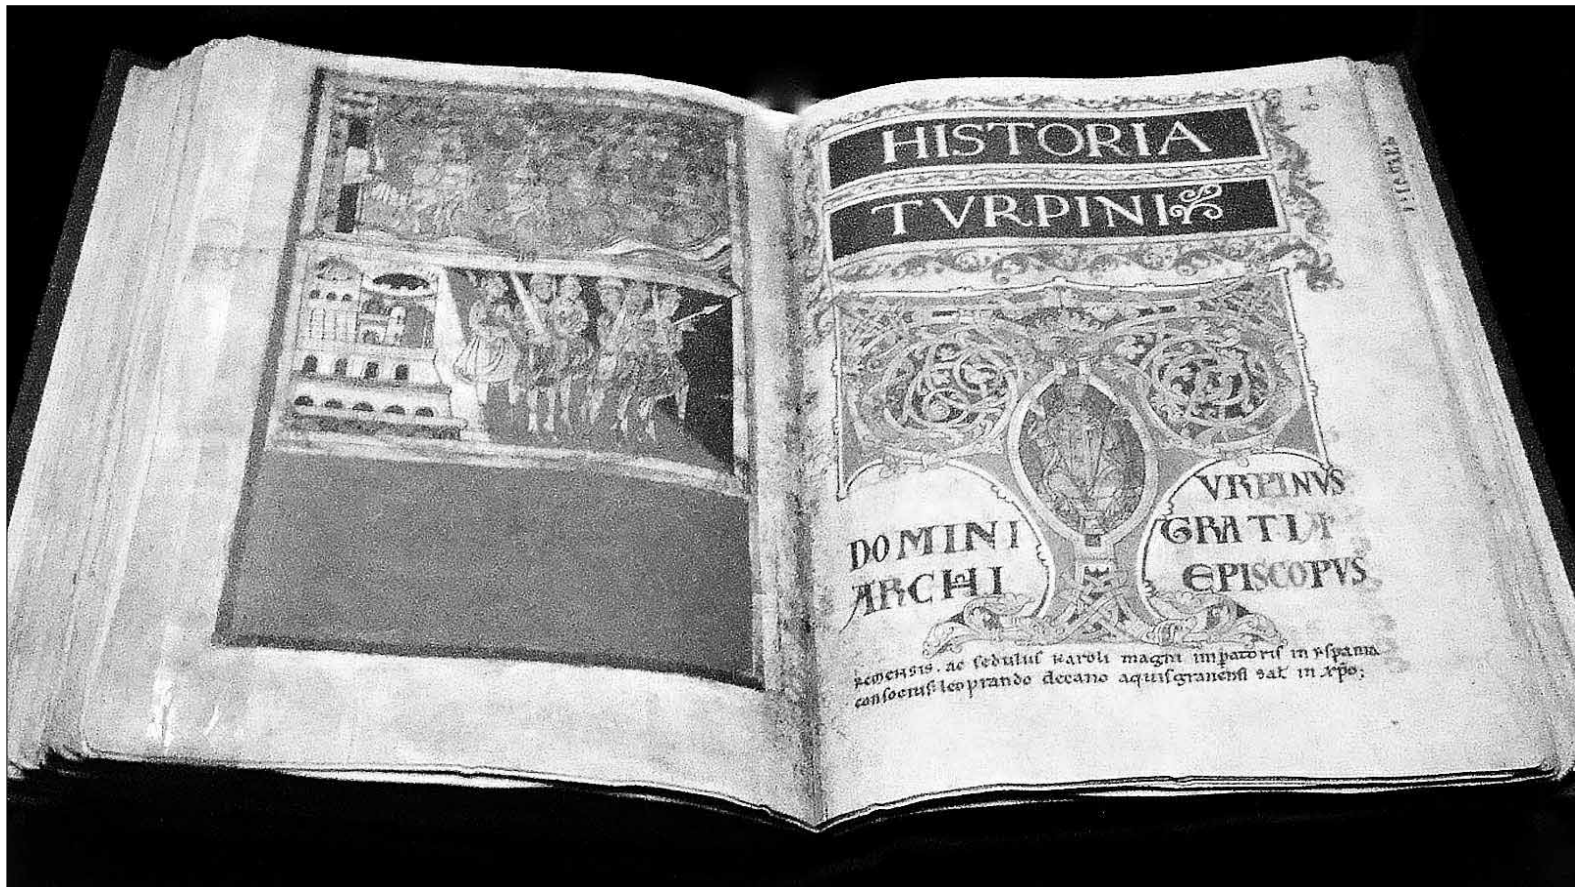 HISTORIA
TVRPINI
VRPINVS
DOMINI GRATIA
ARCHI EPISCOPVS
REMENSIS. ac sedulus karoli magni imparatoris in yspania
consocius: leoprando decano aquisgranensi sal in xpo;